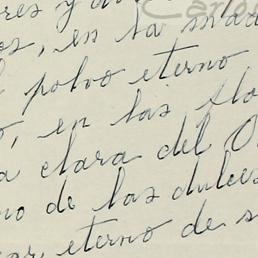 res y
os, en la
polvo eterno
en las
clara del
no de las dulces
eterno de s